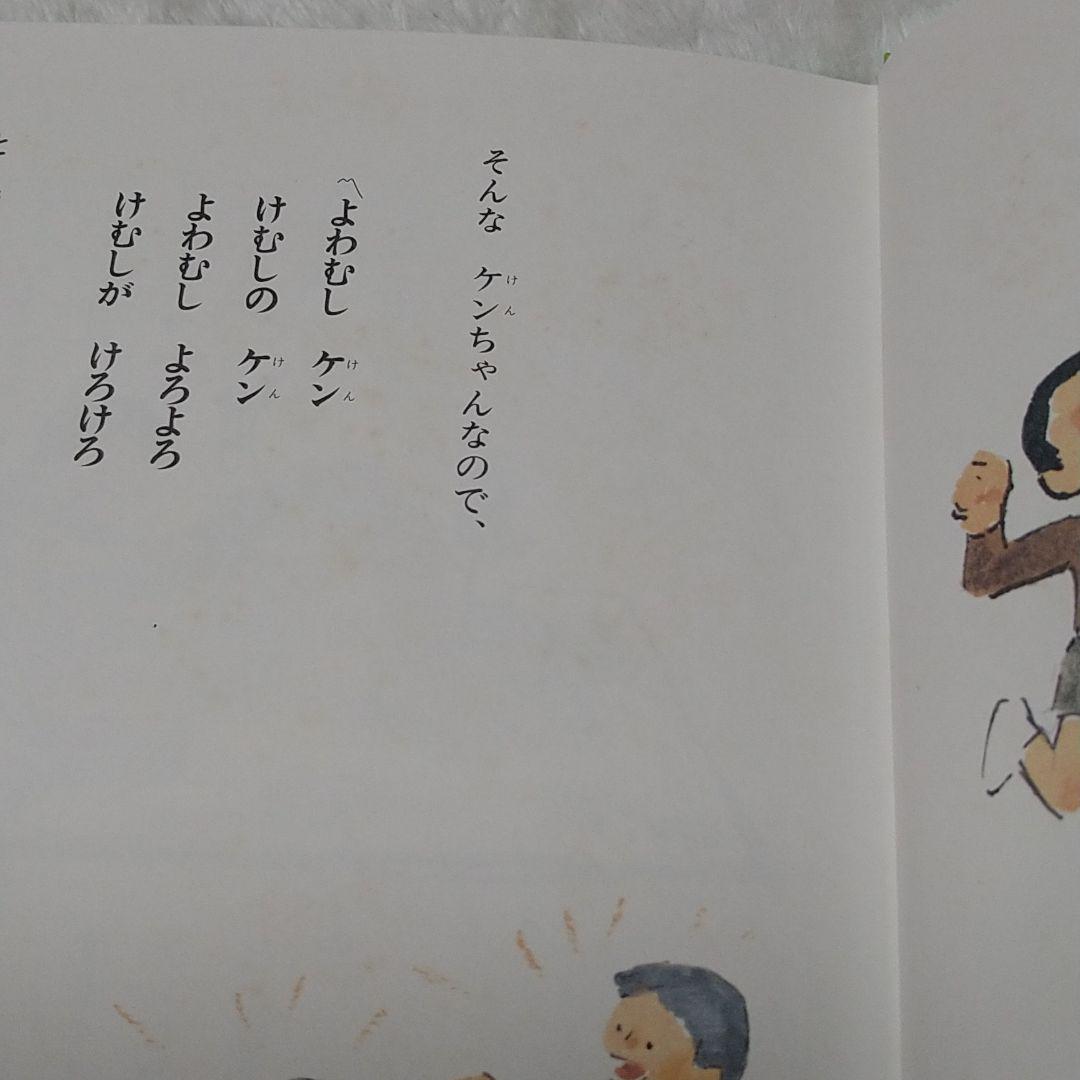 そんな　ケンちゃんなので、
〽よわむし　ケン
けむしの　ケン
よわむし　よろよろ
けむしが　けろけろ